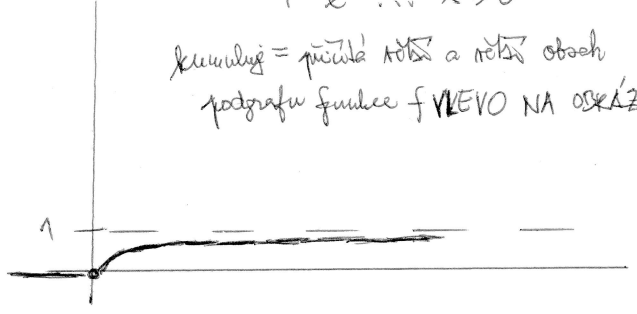 kumuluj = přičítá větší a větší obsah
podgrafu funkce f VLEVO NA OBRÁZ
1